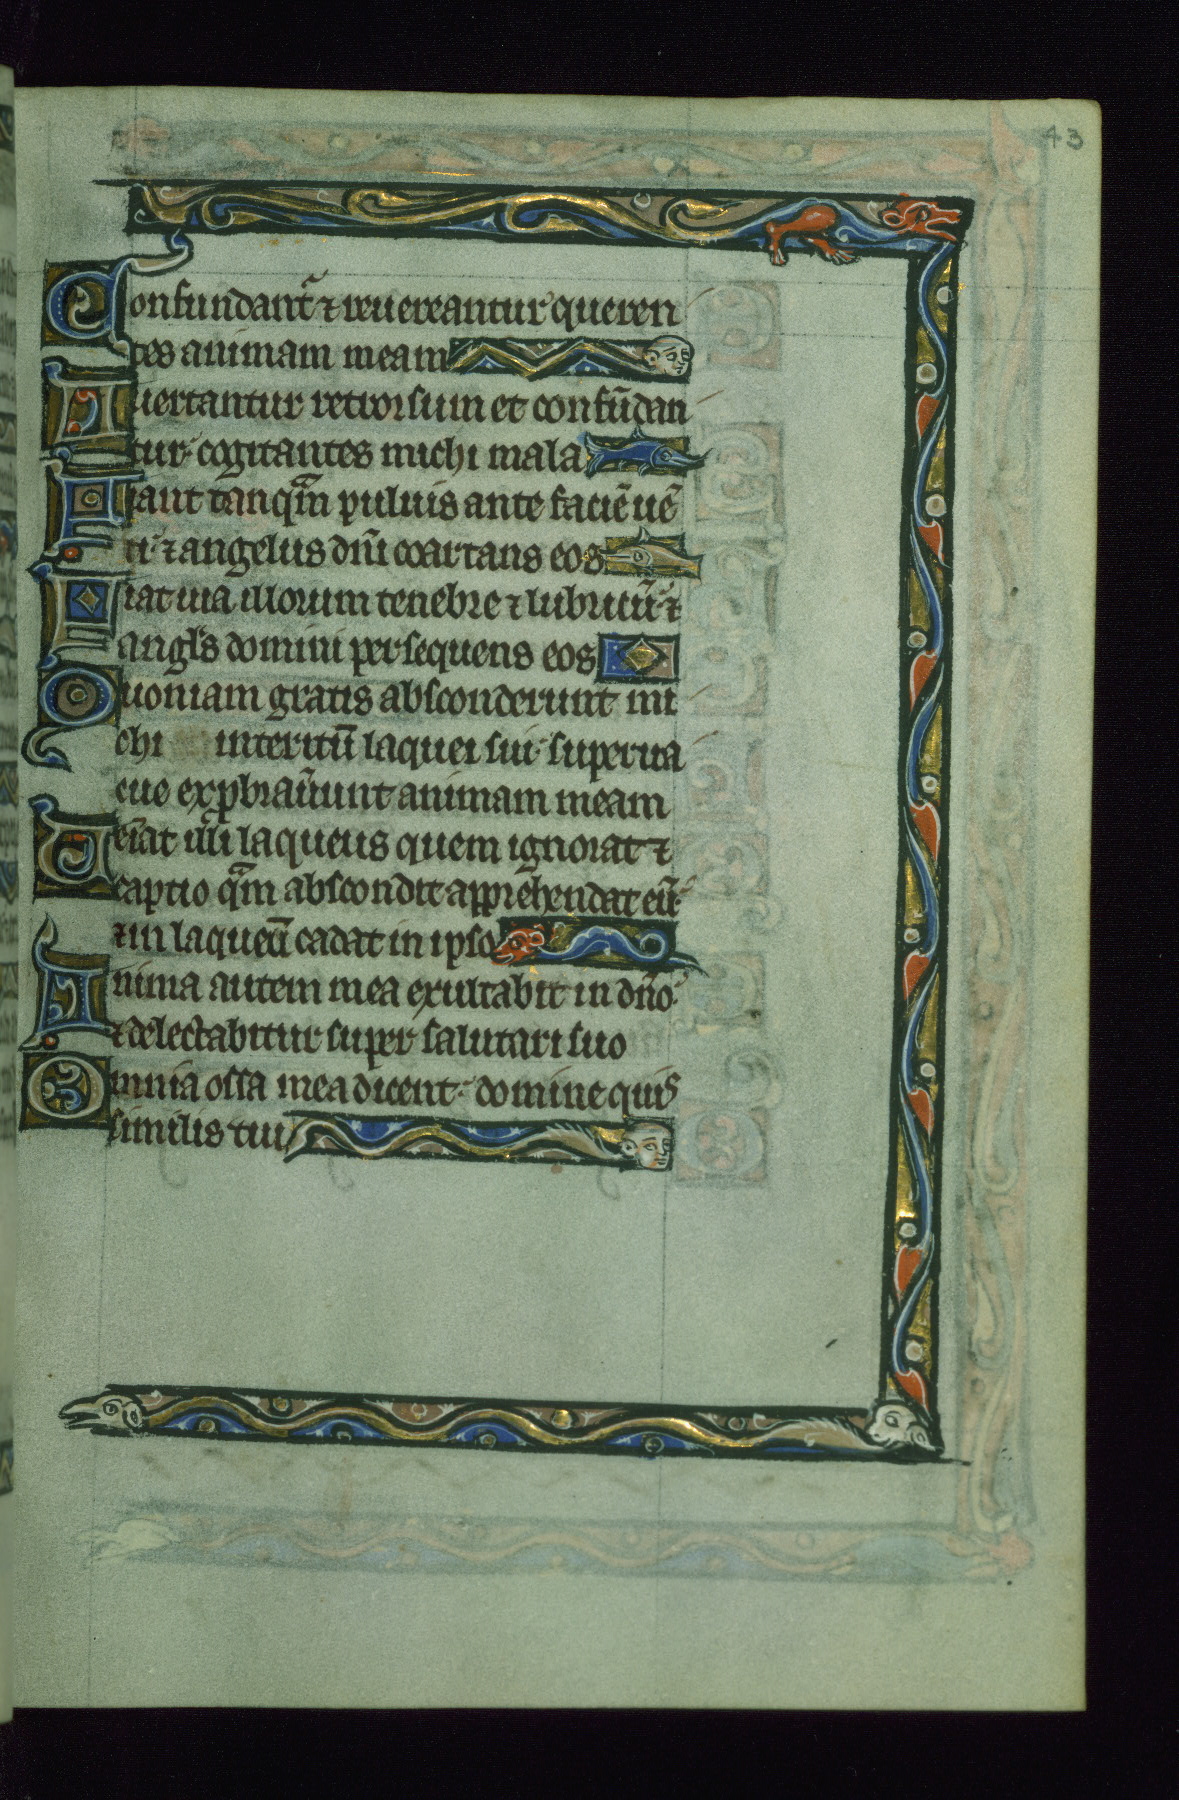 43
Confundant᷑ ⁊ reuereantur queren
tes animam meam
Auertantur retrorsum et confūdan
tur cogitantes michi mala
Fiant tanqᷓm puluis ante faciē uē
ti ⁊ angelus dn̄i coartans eos
Fiat uia illorum tenebre ⁊ lubricū ⁊
angl̓s domini persequens eos
Quoniam gratis absconderunt mi
chi interitū laquei sui superua
cue exꝓbrauͬunt animam meam
Ueīat illi laqueus quem ignorat ⁊
captio qᷓm abscondit apprehendat eū
⁊ in laqueū cadat in ipso
Anima autem mea exultabit in dn̄o
⁊ delectabitur super salutari suo
Omnia ossa mea dicent domine quis
similis tui